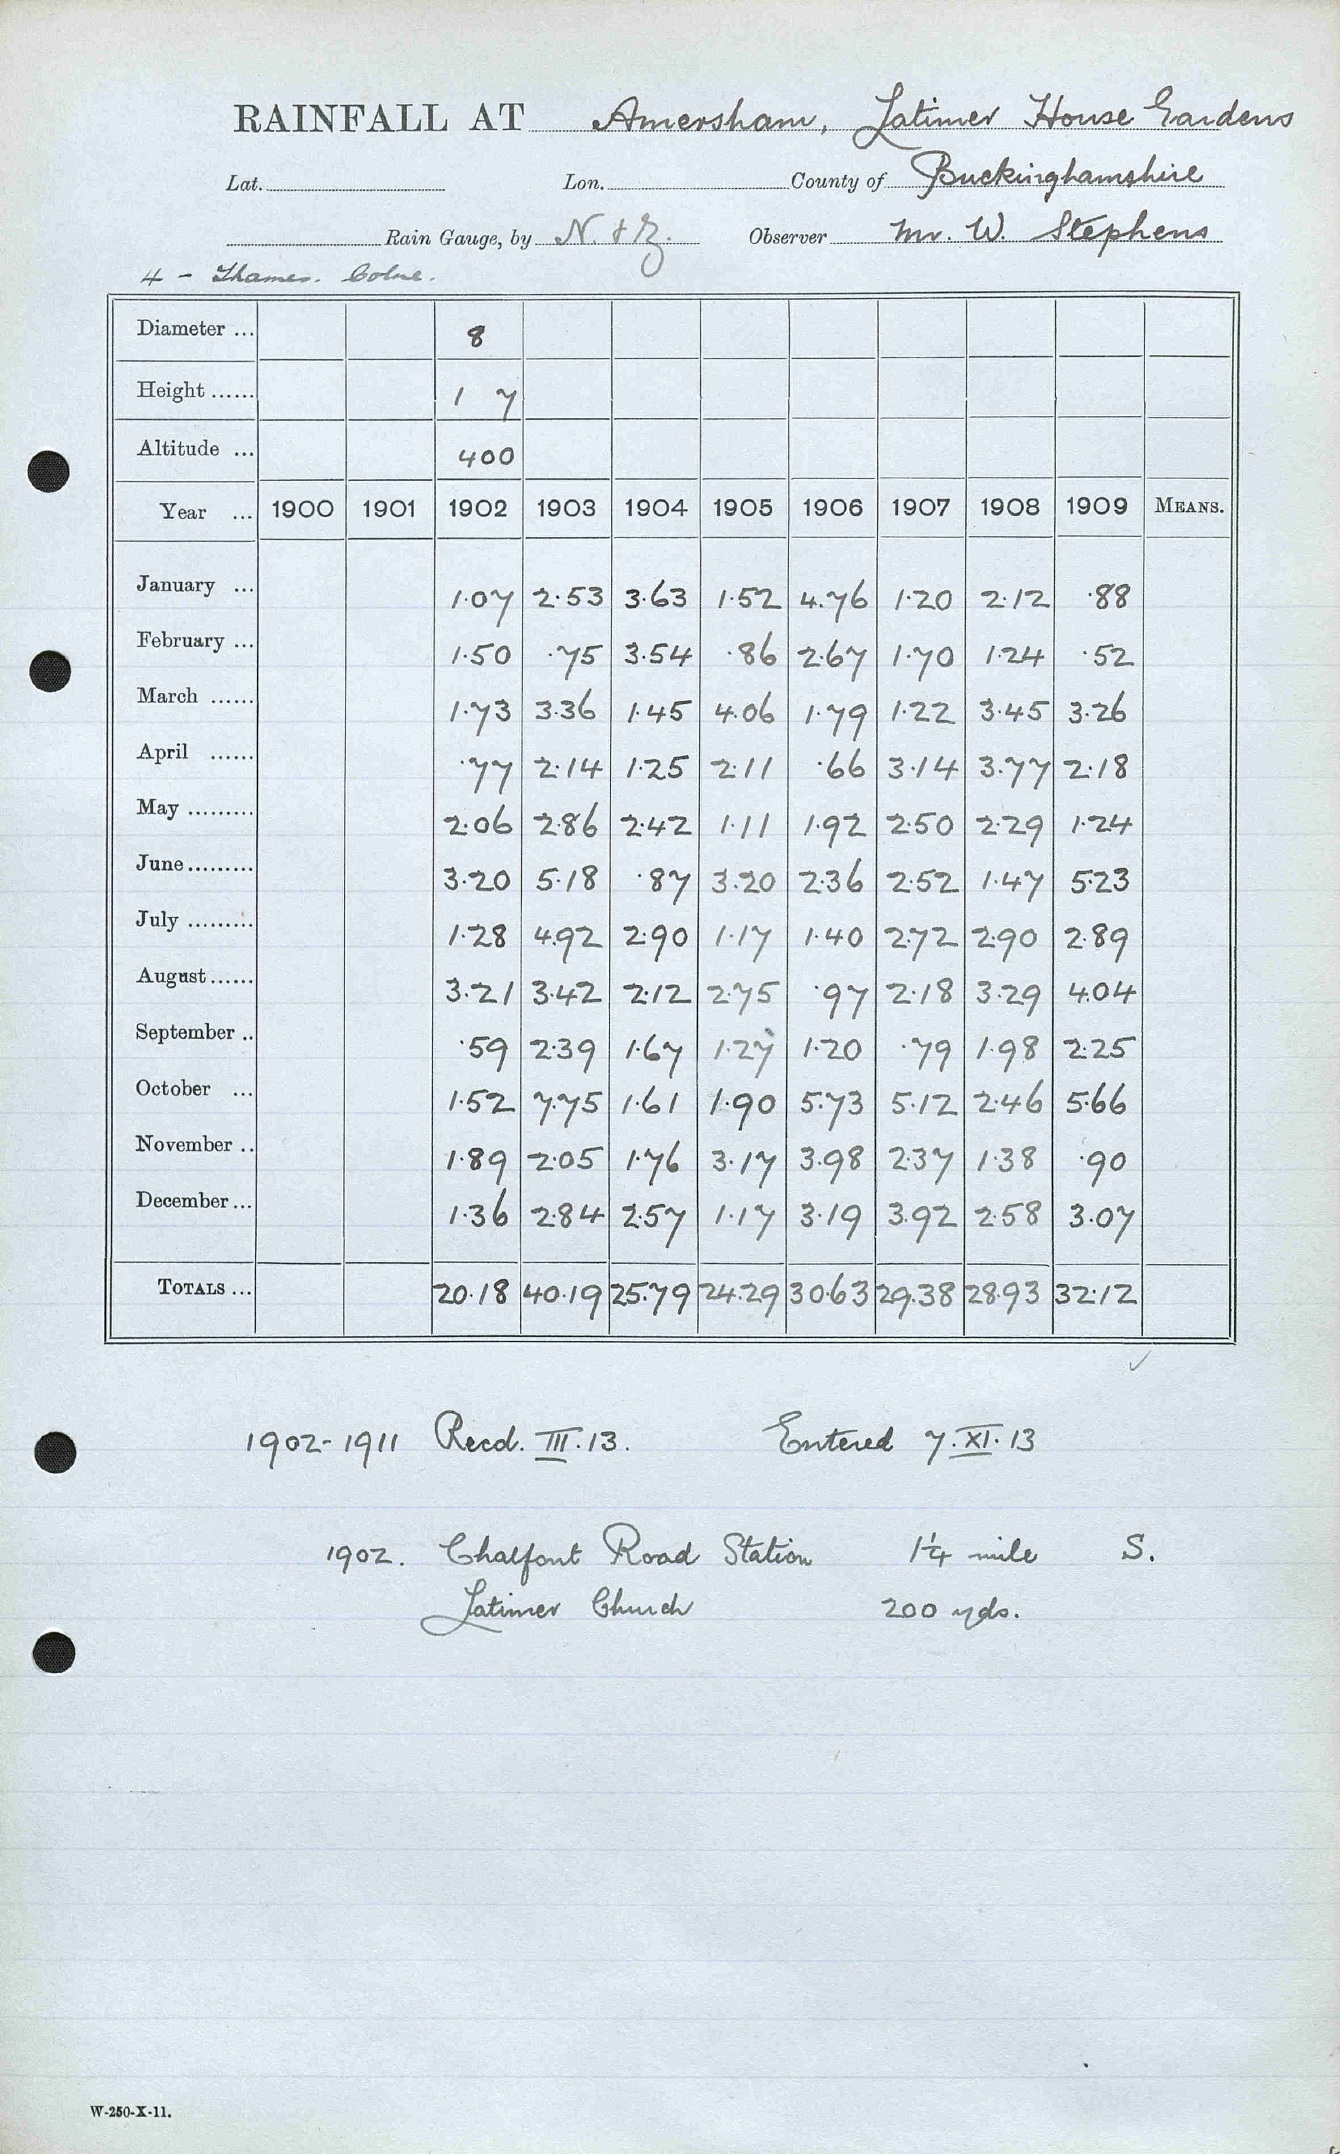 RAINFALL AT Amersham, Latimer House Gardens
Lat. Lon. County of Buckinghamshire
Rain Gauge, by N. & Z. Observer Mr. W. Stephens
4 - Thames. Colne.
Diameter ... 8
Height ...... 1 7
Altitude ... 400
Year ... 1900 1901 1902 1903 1904 1905 1906 1907 1908 1909 MEANS.
January ... 1.07 2.53 3.63 1.52 4.76 1.20 2.12 .88
February ... 1.50 .75 3.54 .86 2.67 1.70 1.24 .52
March ...... 1.73 3.36 1.45 4.06 1.79 1.22 3.45 3.26
April ...... .77 2.14 1.25 2.11 .66 3.14 3.77 2.18
May ......... 2.06 2.86 2.42 1.11 1.92 2.50 2.29 1.24
June ......... 3.20 5.18 .87 3.20 2.36 2.52 1.47 5.23
July ......... 1.28 4.92 2.90 1.17 1.40 2.72 2.90 2.89
August ...... 3.21 3.42 2.12 2.75 .97 2.18 3.29 4.04
September .. .59 2.39 1.67 1.27 1.20 .79 1.98 2.25
October ... 1.52 7.75 1.61 1.90 5.73 5.12 2.46 5.66
November .. 1.89 2.05 1.76 3.17 3.98 2.37 1.38 .90
December ... 1.36 2.84 2.57 1.17 3.19 3.92 2.58 3.07
TOTALS ... 20.18 40.19 25.79 24.29 30.63 29.38 28.93 32.12
1902-1911 Recd. III.13. Entered 7.XI.13
1902. Chalfont Road Station 1¼ mile S.
Latimer Church 200 yds.
W-250-X-11.